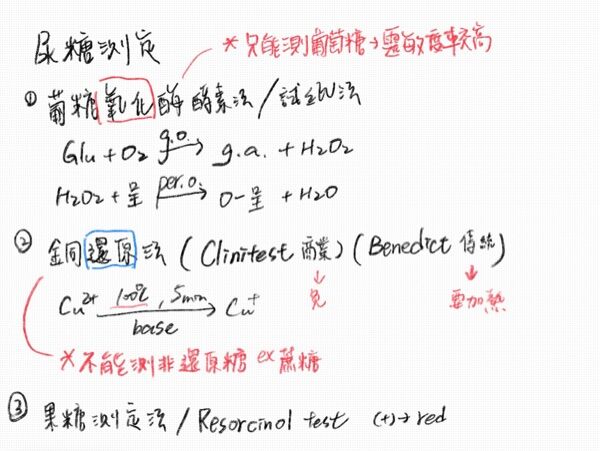 尿糖測定
*只能測葡萄糖→靈敏度較高
① 葡糖氧化酶酵素法/試紙法
Glu + O2 g.o.→ g.a. + H2O2
H2O2 + 呈 per.o.→ O-呈 + H2O
② 銅還原法 (Clinitest 商業) (Benedict 傳統)
Cu2+ 100℃, 5min→ Cu+ ↓免 ↓要加熱
base
*不能測非還原糖 ex 蔗糖
③ 果糖測定法/Resorcinol test (+)→red